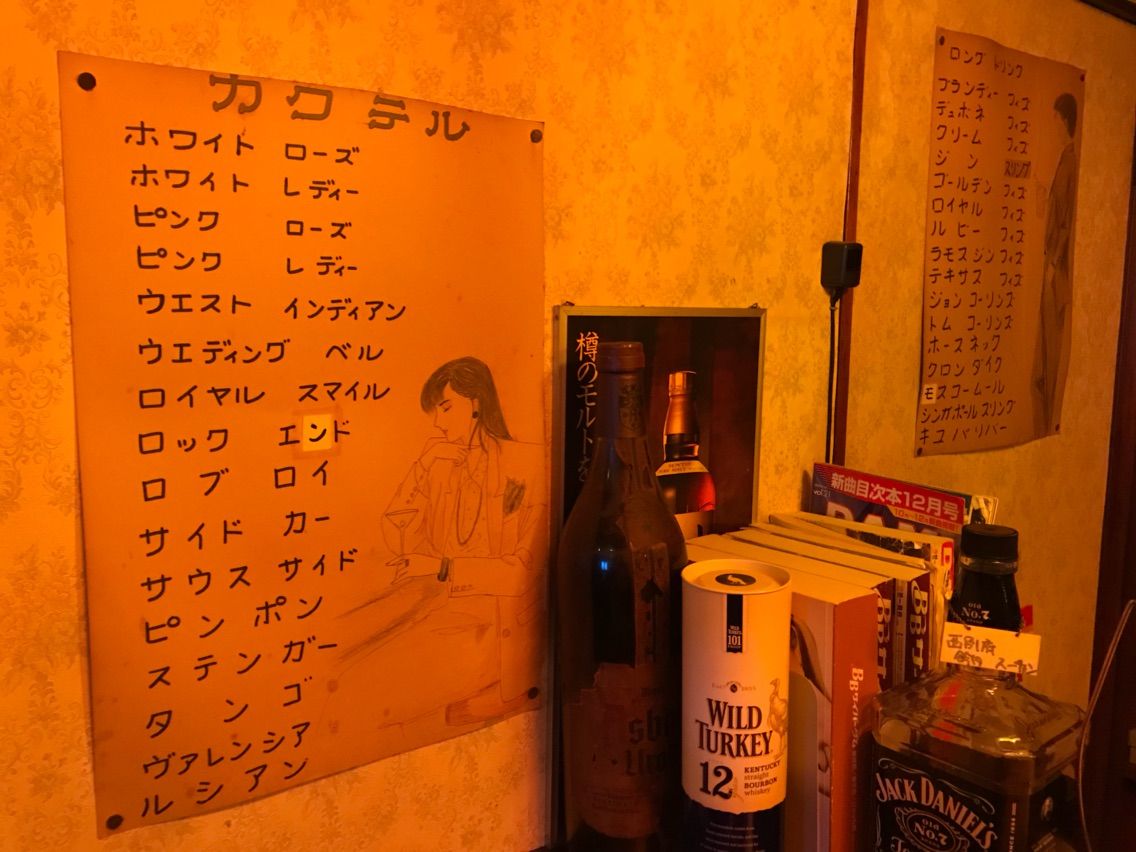 カクテル
ホワイト ローズ
ホワイト レディー
ピンク ローズ
ピンク レディー
ウエスト インディアン
ウエディング ベル
ロイヤル スマイル
ロック エンド
ロブ ロイ
サイド カー
サウス サイド
ピン ポン
ステンガー
タンゴ
ヴァレンシア
ルシアン
樽のモルトを
WILD
TURKEY
101
WILD
TURKEY
12
KENTUCKY
straight
BOURBON
whiskey
新曲目次本12月号
BB
BB
BB
OLD
No.7
西別府
JACK DANIEL'S
OLD
No.7
ロング ドリンク
ブランディー フィズ
デュボネ フィズ
クリーム フィズ
ジン スリング
ゴールデン フィズ
ロイヤル フィズ
ルビー フィズ
ラモスジン フィズ
テキサス フィズ
ジョン コーリンズ
トム コーリンズ
ホース ネック
クロンダイク
モスコームール
シンガポールスリング
キューバリバー